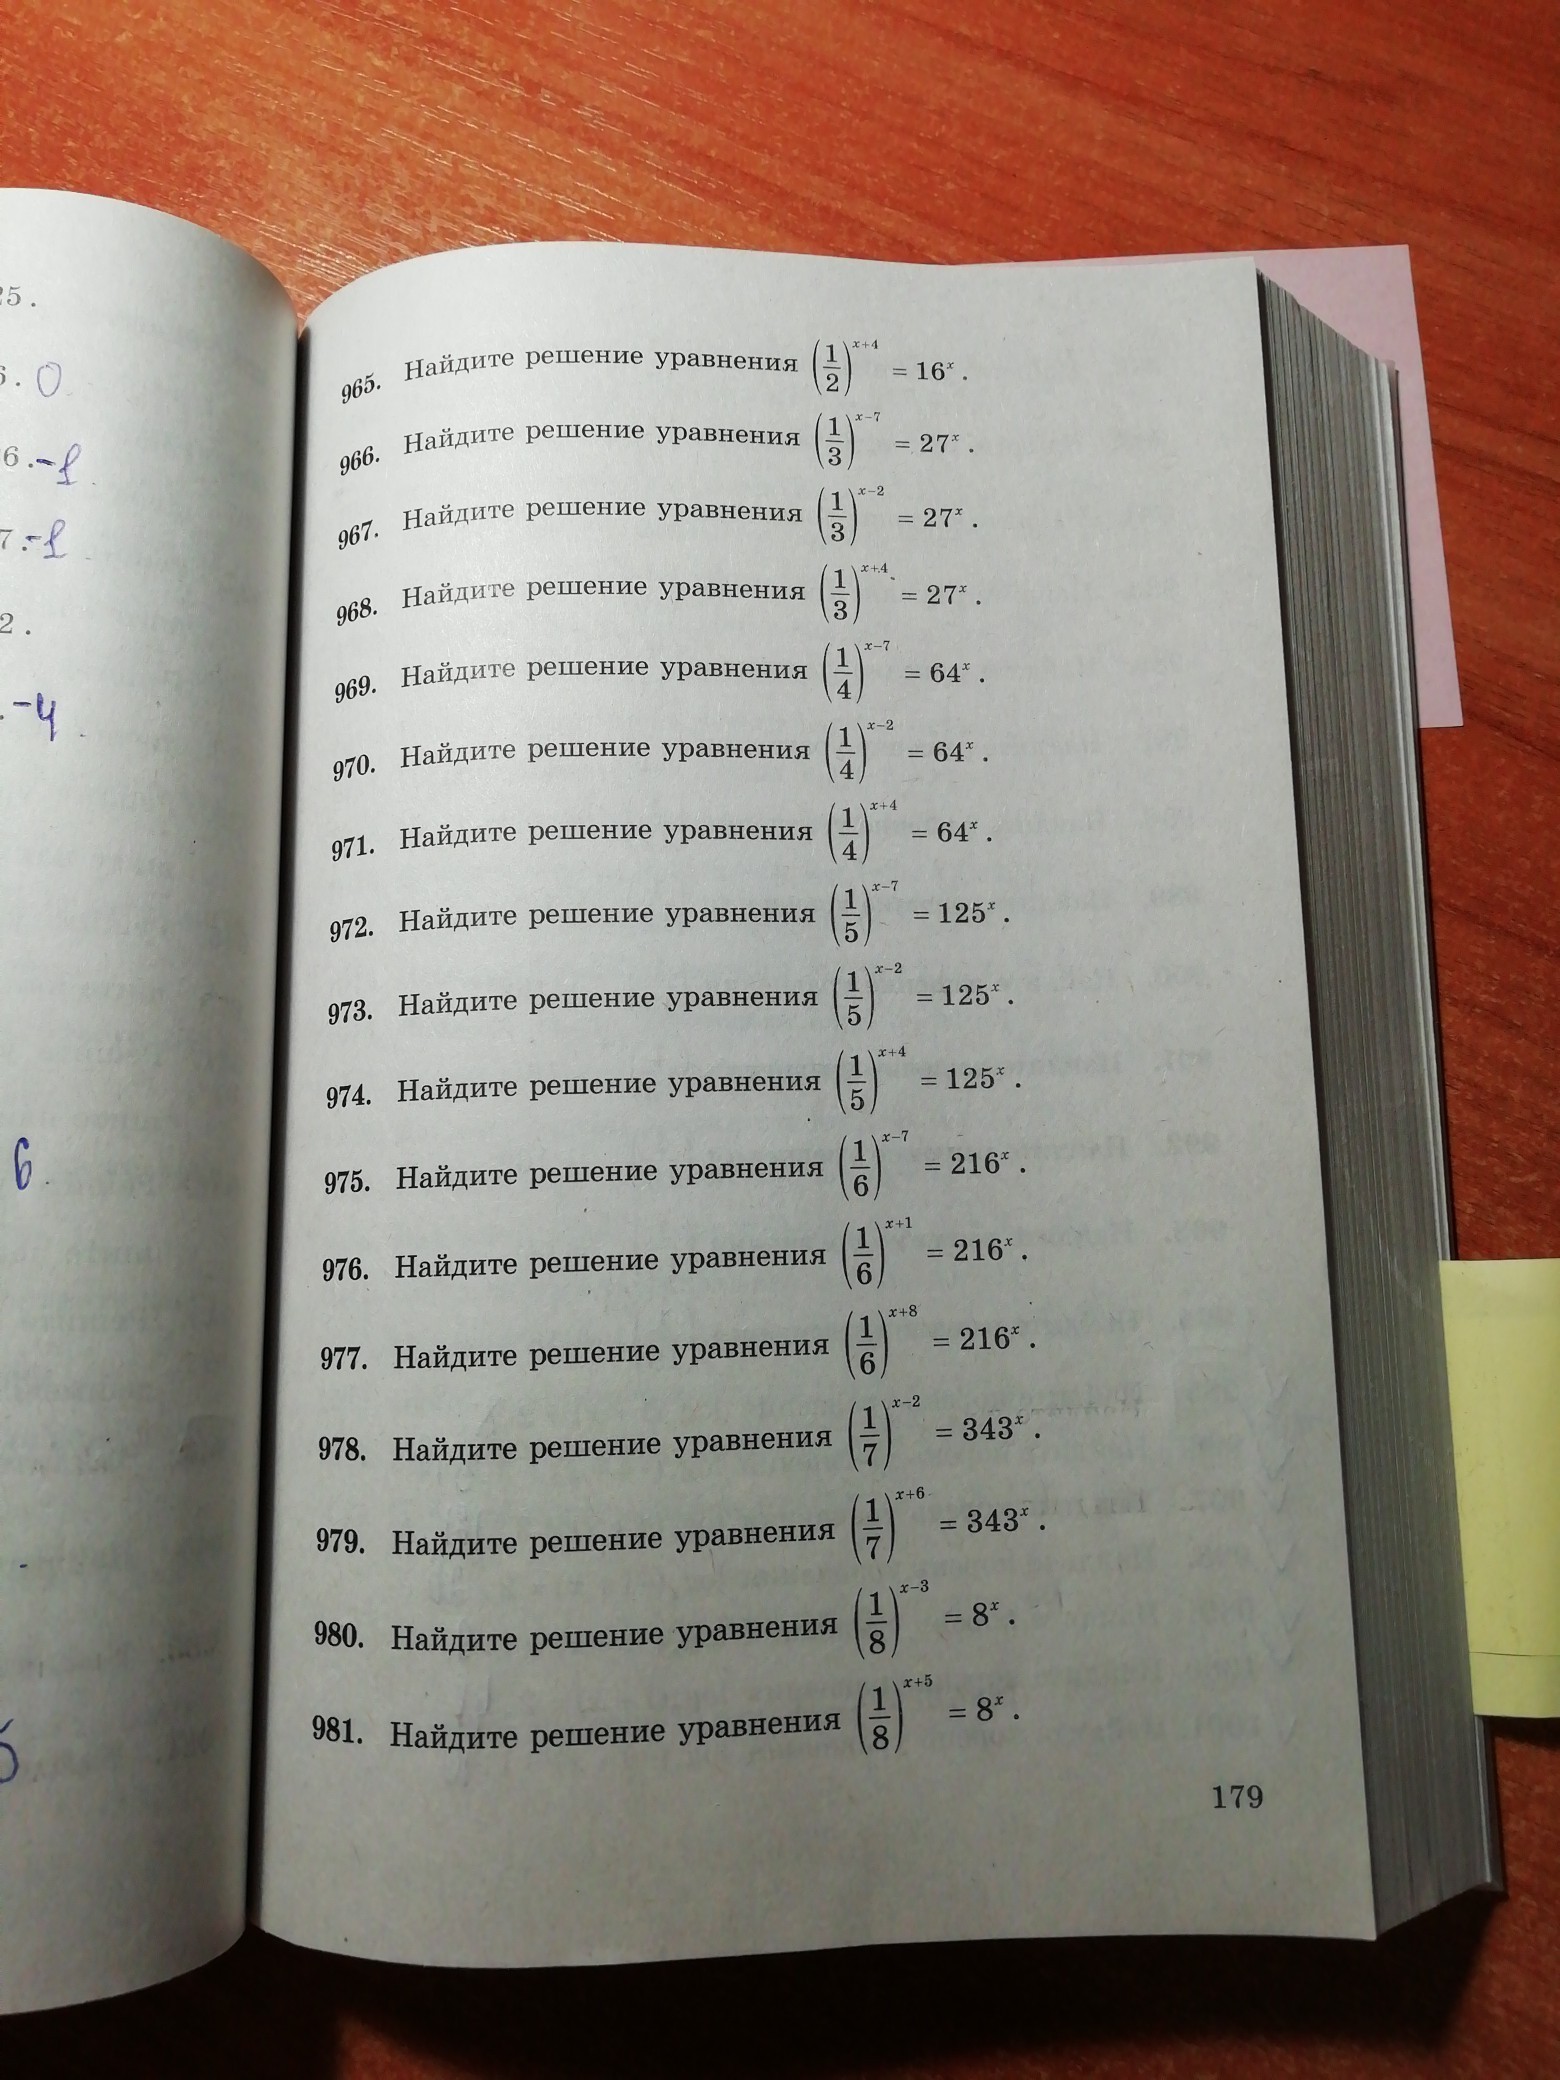 25.
6. 0
6. -1
7. -1
2.
. -4
6
965. Найдите решение уравнения (1/2)^(x+4) = 16^x.
966. Найдите решение уравнения (1/3)^(x−7) = 27^x.
967. Найдите решение уравнения (1/3)^(x−2) = 27^x.
968. Найдите решение уравнения (1/3)^(x+4) = 27^x.
969. Найдите решение уравнения (1/4)^(x−7) = 64^x.
970. Найдите решение уравнения (1/4)^(x−2) = 64^x.
971. Найдите решение уравнения (1/4)^(x+4) = 64^x.
972. Найдите решение уравнения (1/5)^(x−7) = 125^x.
973. Найдите решение уравнения (1/5)^(x−2) = 125^x.
974. Найдите решение уравнения (1/5)^(x+4) = 125^x.
975. Найдите решение уравнения (1/6)^(x−7) = 216^x.
976. Найдите решение уравнения (1/6)^(x+1) = 216^x.
977. Найдите решение уравнения (1/6)^(x+8) = 216^x.
978. Найдите решение уравнения (1/7)^(x−2) = 343^x.
979. Найдите решение уравнения (1/7)^(x+6) = 343^x.
980. Найдите решение уравнения (1/8)^(x−3) = 8^x.
981. Найдите решение уравнения (1/8)^(x+5) = 8^x.
179